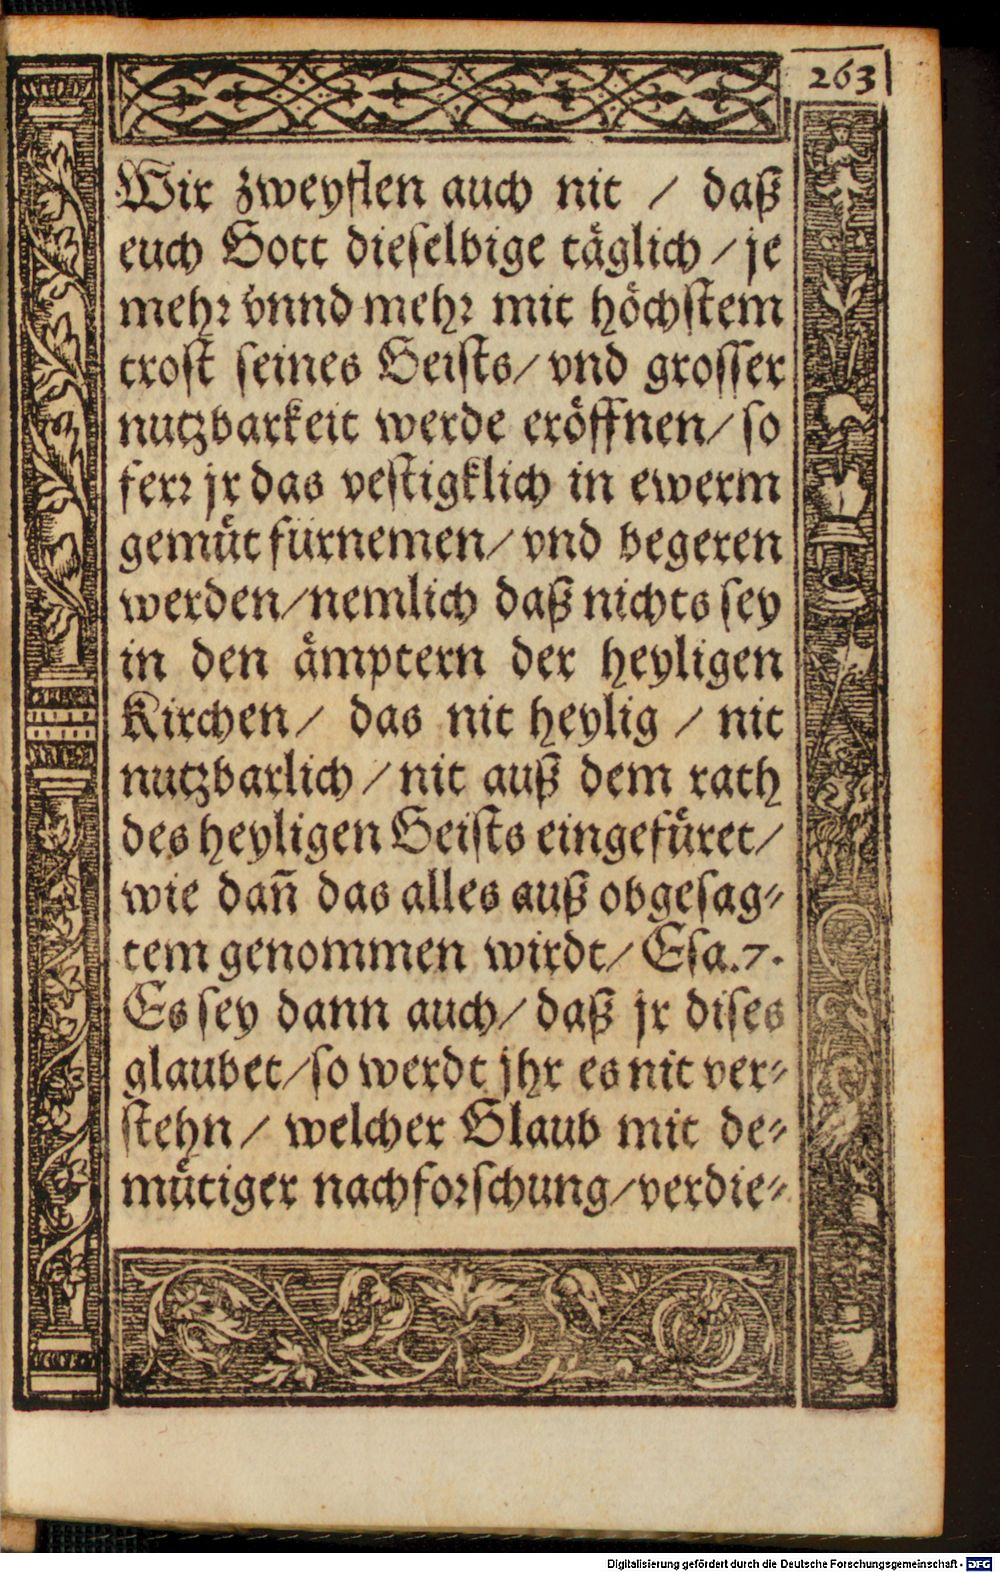 263
Wir zweyflen auch nit / daß
euch Gott dieselbige täglich / je
mehr vnnd mehr mit höchstem
trost seines Geists / vnd grosser
nutzbarkeit werde eröffnen / so
ferr jr das vestigklich in ewerm
gemüt fürnemen / vnd begeren
werden / nemlich daß nichts sey
in den ämptern der heyligen
Kirchen / das nit heylig / nit
nutzbarlich / nit auß dem rath
des heyligen Geists eingefüret /
wie dañ das alles auß obgesag⸗
tem genommen wirdt / Esa. 7.
Es sey dann auch / daß jr dises
glaubet / so werdt jhr es nit ver⸗
stehn / welcher Glaub mit de⸗
mütiger nachforschung / verdie⸗
Digitalisierung gefördert durch die Deutsche Forschungsgemeinschaft - DFG